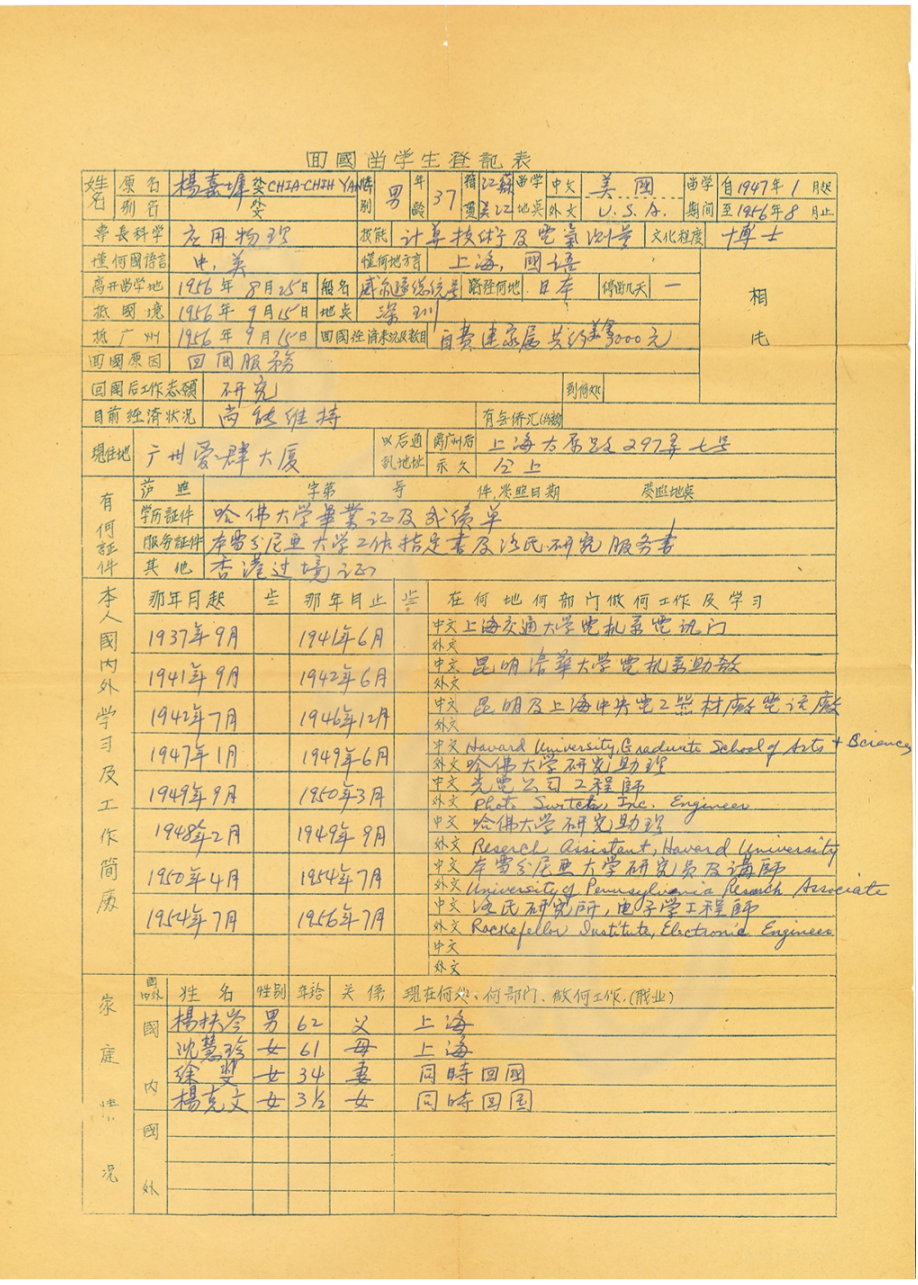 回國留学生登記表
姓名 原名 楊嘉墀 外文 CHIA-CHIH YANG 性別 男 年齡 37 籍貫 江蘇吳江 留学地点 中文 美國 留学期間 自1947年1月起
別名 外文 外文 U.S.A. 至1956年8月止
專長科学 应用物理 技能 计算技術及電氣测量 文化程度 博士
懂何國語言 中,英 懂何地方言 上海,國语
离开留学地 1956年8月25日 船名 威尔逊總统号 路经何地 日本 停留几天 一
抵國境 1956年9月15日 地点 深圳
相片
抵广州 1956年9月15日 回國经濟来沅及数目 自费連家属共约美金3000元
回國原因 回國服務
回国后工作志願 研究 到何处
目前经濟狀况 尚能维持 有否侨汇
現住地 广州爱群大厦 以后通訊地址 离广州后 上海太原路297弄七号
永久 仝上
有何証件 护照 字第 号 件,发照日期 发照地点
学历証件 哈佛大学畢業证及成绩单
服务証件 本雪分尼亚大学工作指定書及洛氏研究所服务書
其他 香港过境证
本人國内外学习及工作简历 那年月起 那年月止 在何地何部门做何工作及学习
1937年9月 1941年6月 中文 上海交通大学电机系電讯门
外文
1941年9月 1942年6月 中文 昆明清華大学電机系助教
外文
1942年7月 1946年12月 中文 昆明及上海中央电工器材廠電话廠
外文
1947年1月 1949年6月 中文 Havard University, Graduate School of Arts + Sciences
外文 哈佛大学研究助理
1949年9月 1950年3月 中文 光電公司工程師
外文 Photo Switch, Inc. Engineer
1948年2月 1949年9月 中文 哈佛大学研究助理
外文 Reserch Assistant, Havard University
1950年4月 1954年7月 中文 本雪分尼亚大学研究员及講師
外文 University of Pennsylvania Research Associate
1954年7月 1956年7月 中文 洛氏研究所,电子学工程師
外文 Rockefellor Institute, Electronic Engineer
中文
外文
家庭情况 國内外 姓名 性别 年龄 关係 現在何处、何部门、做何工作.(职业)
國内 楊扶岑 男 62 父 上海
沈慧珍 女 61 母 上海
徐斐 女 34 妻 同時回國
楊克文 女 3½ 女 同時回国
國外